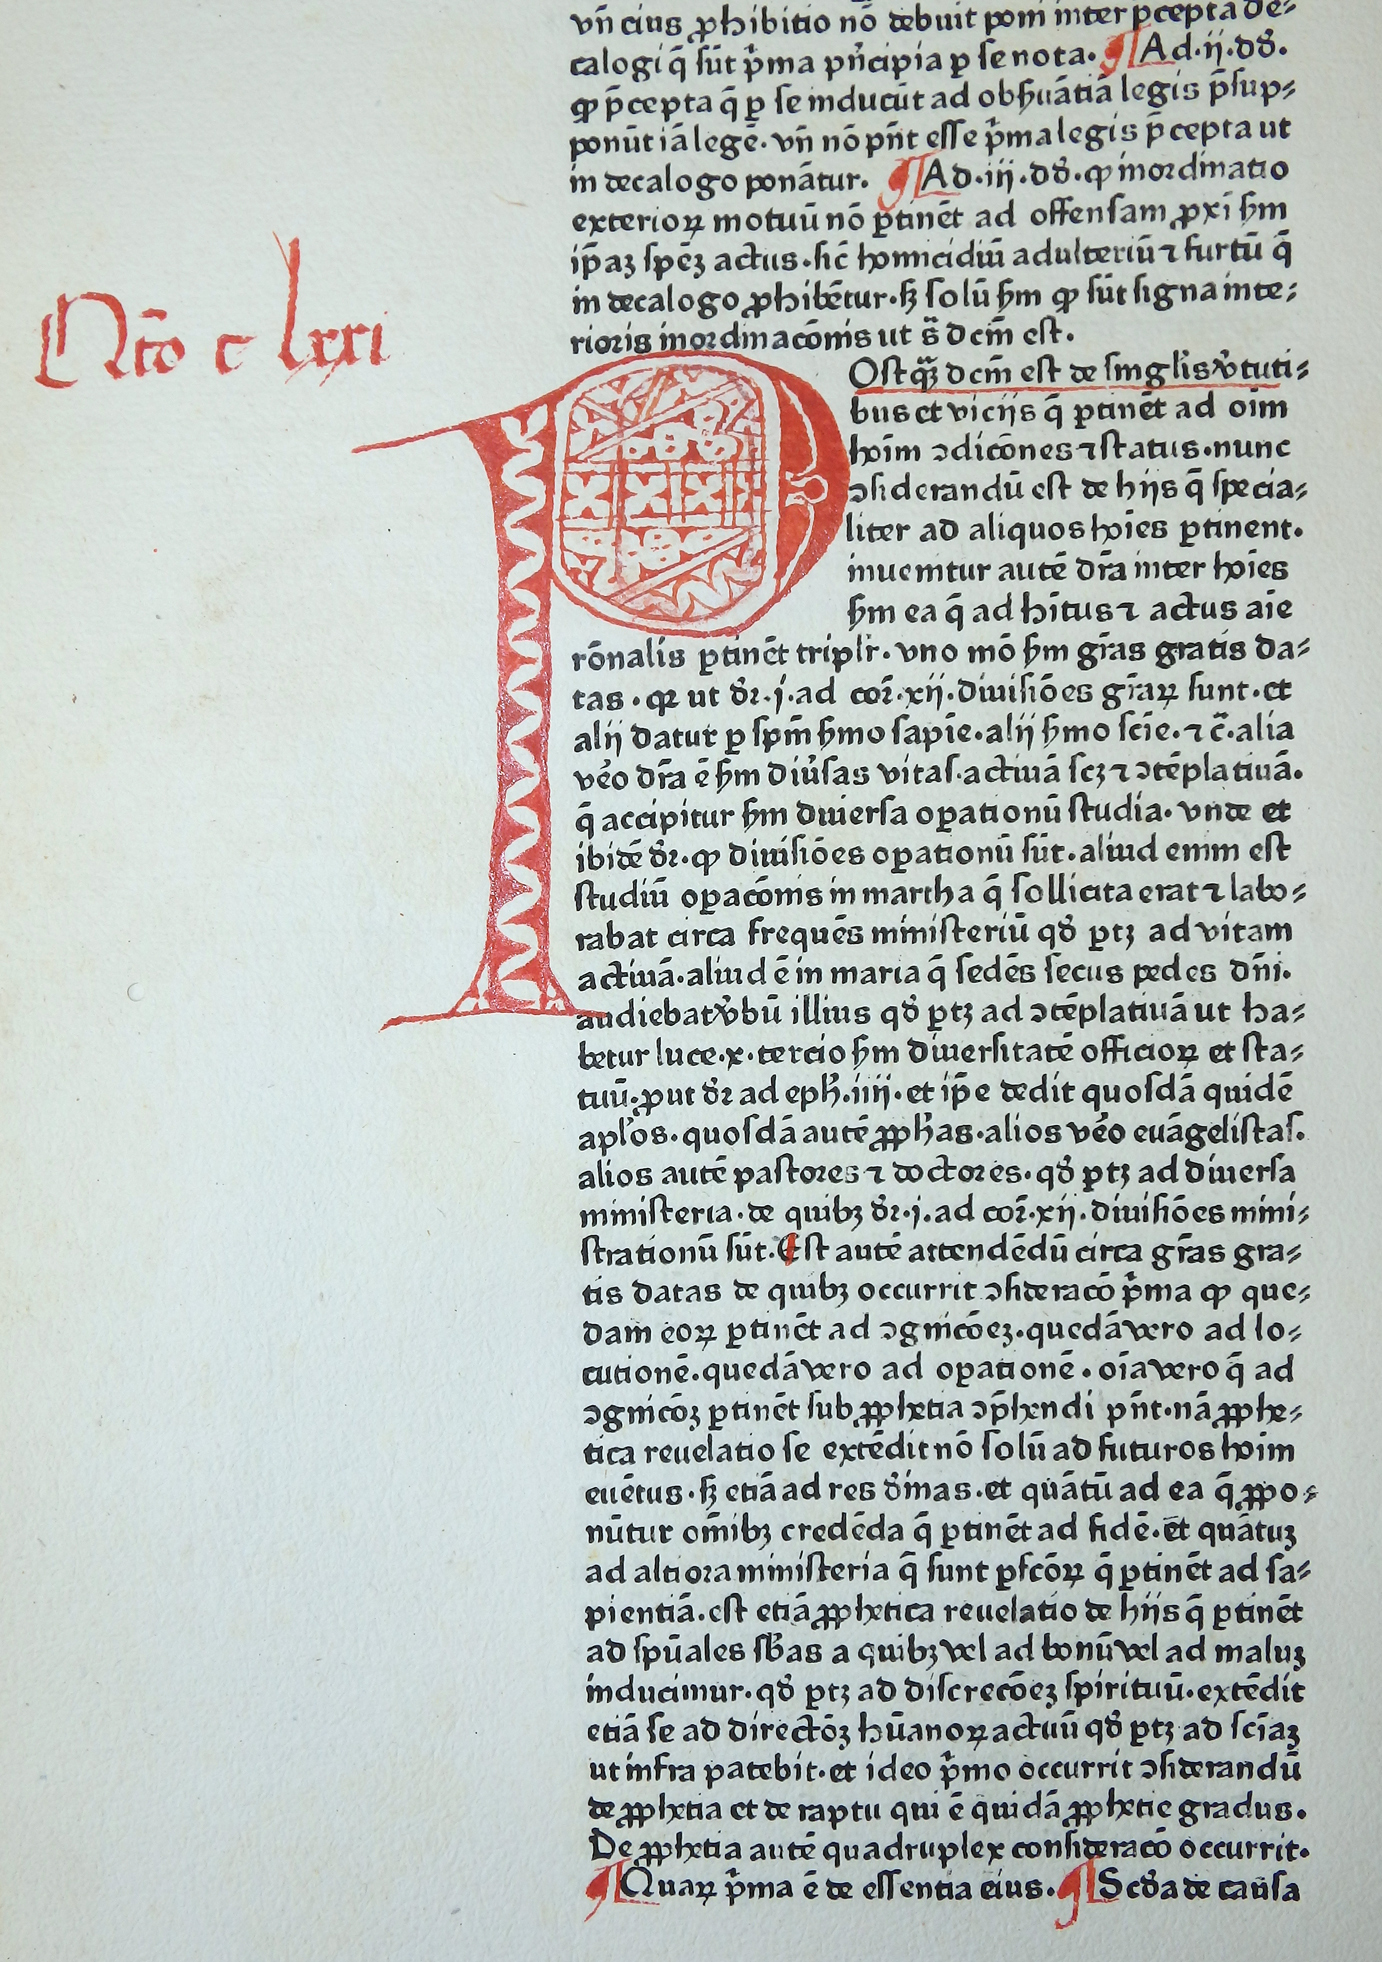 vn̄ eius ꝓhibitio nō debuit poni inter p̄cepta de⸗
calogi q̄ sūt p̄ma pn̄cipia ꝑ se nota. ¶ Ad .ij. dꝫ.
ꝙ p̄cepta q̄ ꝑ se inducūt ad obẜuātiā legis p̄sup⸗
ponūt iā legē. vn̄ nō pn̄t esse p̄ma legis p̄cepta ut
in decalogo ponātur. ¶ Ad .iij. dꝫ. ꝙ inordinatio
exterioꝝ motuū nō ꝑtinēt ad offensam ꝓxī ẜm
ip̄aꝫ spēꝫ actus. sic̄ homicidiū adulteriū ⁊ furtū q̄
in decalogo ꝓhibētur. sꝫ solū ẜm ꝙ sūt signa inte⸗
rioris inordinacōnis ut s̄ dcm̄ est.
Qtīo c lxxi
POstꝙ̄ꝫ dcm̄ est de singlis v̓tuti⸗
bus et vicijs q̄ ꝑtinēt ad oīm
hoīm ꝯdicōnes ⁊ status. nunc
ꝯsiderandū est de hijs q̄ specia⸗
liter ad aliquos hoīes ꝑtinent.
inueniitur autē dr̄a inter hoīes
ẜm ea q̄ ad hītus ⁊ actus aīe
rōnalis ꝑtinēt triplr̄. vno mō ẜm gr̄as gratis da⸗
tas. qꝛ ut dꝛ̄ .j. ad coꝛ̄. xij. diuisiōes gr̄aꝝ sunt. et
alij datur ꝑ spm̄ ẜmo sapīe. alij ẜmo scīe. ⁊ c̄. alia
vēo dr̄a ē ẜm diūsas vitas. actiuā scꝫ ⁊ ꝯtēplatiuā.
q̄ accipitur ẜm diuersa oꝑationū studia. vnde et
ibidē dꝛ̄. ꝙ diuisiōes oꝑationū sūt. aliud enim est
studiū oꝑacōnis in martha q̄ sollicita erat ⁊ labo⸗
rabat circa frequēs ministeriū qđ ꝑtꝫ ad vitam
actiuā. aliud ē in maria q̄ sedēs secus pedes dn̄i.
audiebat v̓bū illius qđ ꝑtꝫ ad ꝯtēplatiuā ut ha⸗
betur luce .x. tercio ẜm diuersitatē officioꝝ et sta⸗
tuū. ꝓut dꝛ̄ ad eph̄. iiij. et ip̄e dedit quosdā quidē
apl̓os. quosdā autē ꝓph̄as. alios vēo euāgelistas.
alios autē pastores ⁊ doctores. qđ ꝑtꝫ ad diuersa
ministeria. de quibꝫ dꝛ̄ .j. ad coꝛ̄. xij. diuisiōes mini⸗
strationū sūt. Est autē attendēdū circa gr̄as gra⸗
tis datas de quibꝫ occurrit ꝯsideracō p̄ma ꝙ que⸗
dam eoꝝ ꝑtinēt ad ꝯgnicōeꝫ. quedā vero ad lo⸗
cutionē. quedā vero ad oꝑationē. oīa vero q̄ ad
ꝯgnicōꝫ ꝑtinēt sub ꝓphetia ꝯp̄hendi pn̄t. nā ꝓphe⸗
tica reuelatio se extēdit nō solū ad futuros hoīm
euētus. sꝫ etiā ad res dīnas. et quātū ad ea q̄ ꝓpo⸗
nūtur om̄ibꝫ credēda q̄ ꝑtinēt ad fidē. et quātuꝫ
ad altiora ministeria q̄ sunt ꝑfcōꝝ q̄ ꝑtinēt ad sa⸗
pientiā. est etiā ꝓphetica reuelatio de hijs q̄ ꝑtinēt
ad spūales sb̄as a quibꝫ vel ad bonū vel ad maluꝫ
inducimur. qđ ꝑtꝫ ad discrecōeꝫ spirituū. extēdit
etiā se ad directōꝫ hūanoꝝ actuū qđ ꝑtꝫ ad scīaꝫ
ut infra patebit. et ideo p̄mo occurrit ꝯsiderandū
de ꝓphetia et de raptu qui ē quidā ꝓphetie gradus.
De ꝓphetia autē quadruplex consideracō occurrit.
¶ Quaꝝ p̄ma ē de essentia eius. ¶ Scđa de causa